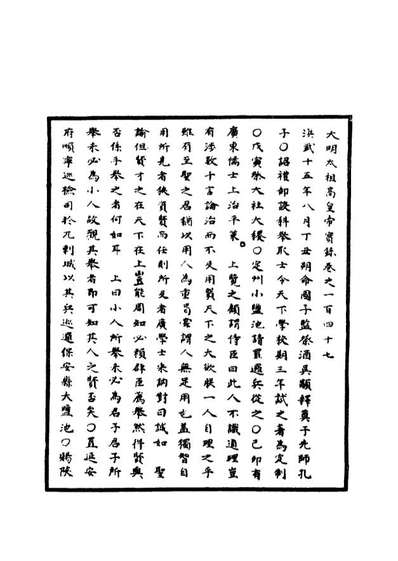 大明太祖高皇帝實錄卷之一百四十七
洪武十五年八月丁丑朔命國子監祭酒吳顒釋奠于先師孔
子○詔禮部設科舉取士令天下學校期三年試之著為定制
○戊寅祭大社大稷○定州小鹽池請置邏兵從之○己卯有
廣東儒士上治平策 上覽之顧謂侍臣曰此人不識道理豈
有涉數十言論治而不及用賢天下之大欲朕一人自理之乎
雖有至聖之君猶以用人為重昌常謂人無足用也蓋獨智自
用所見者狹資賢而任則所及者廣學士宋訥對曰誠如 聖
諭但賢才之在天下在上豈能周知必賴群臣薦舉然件賢與
否係乎舉之者何如耳 上曰小人所舉未必為君子君子所
舉未必為小人故觀其舉者即可知其人之賢否矣○置延安
府順寧巡檢司於兀剌城以其兵巡邏保安縣大鹽池○將陝